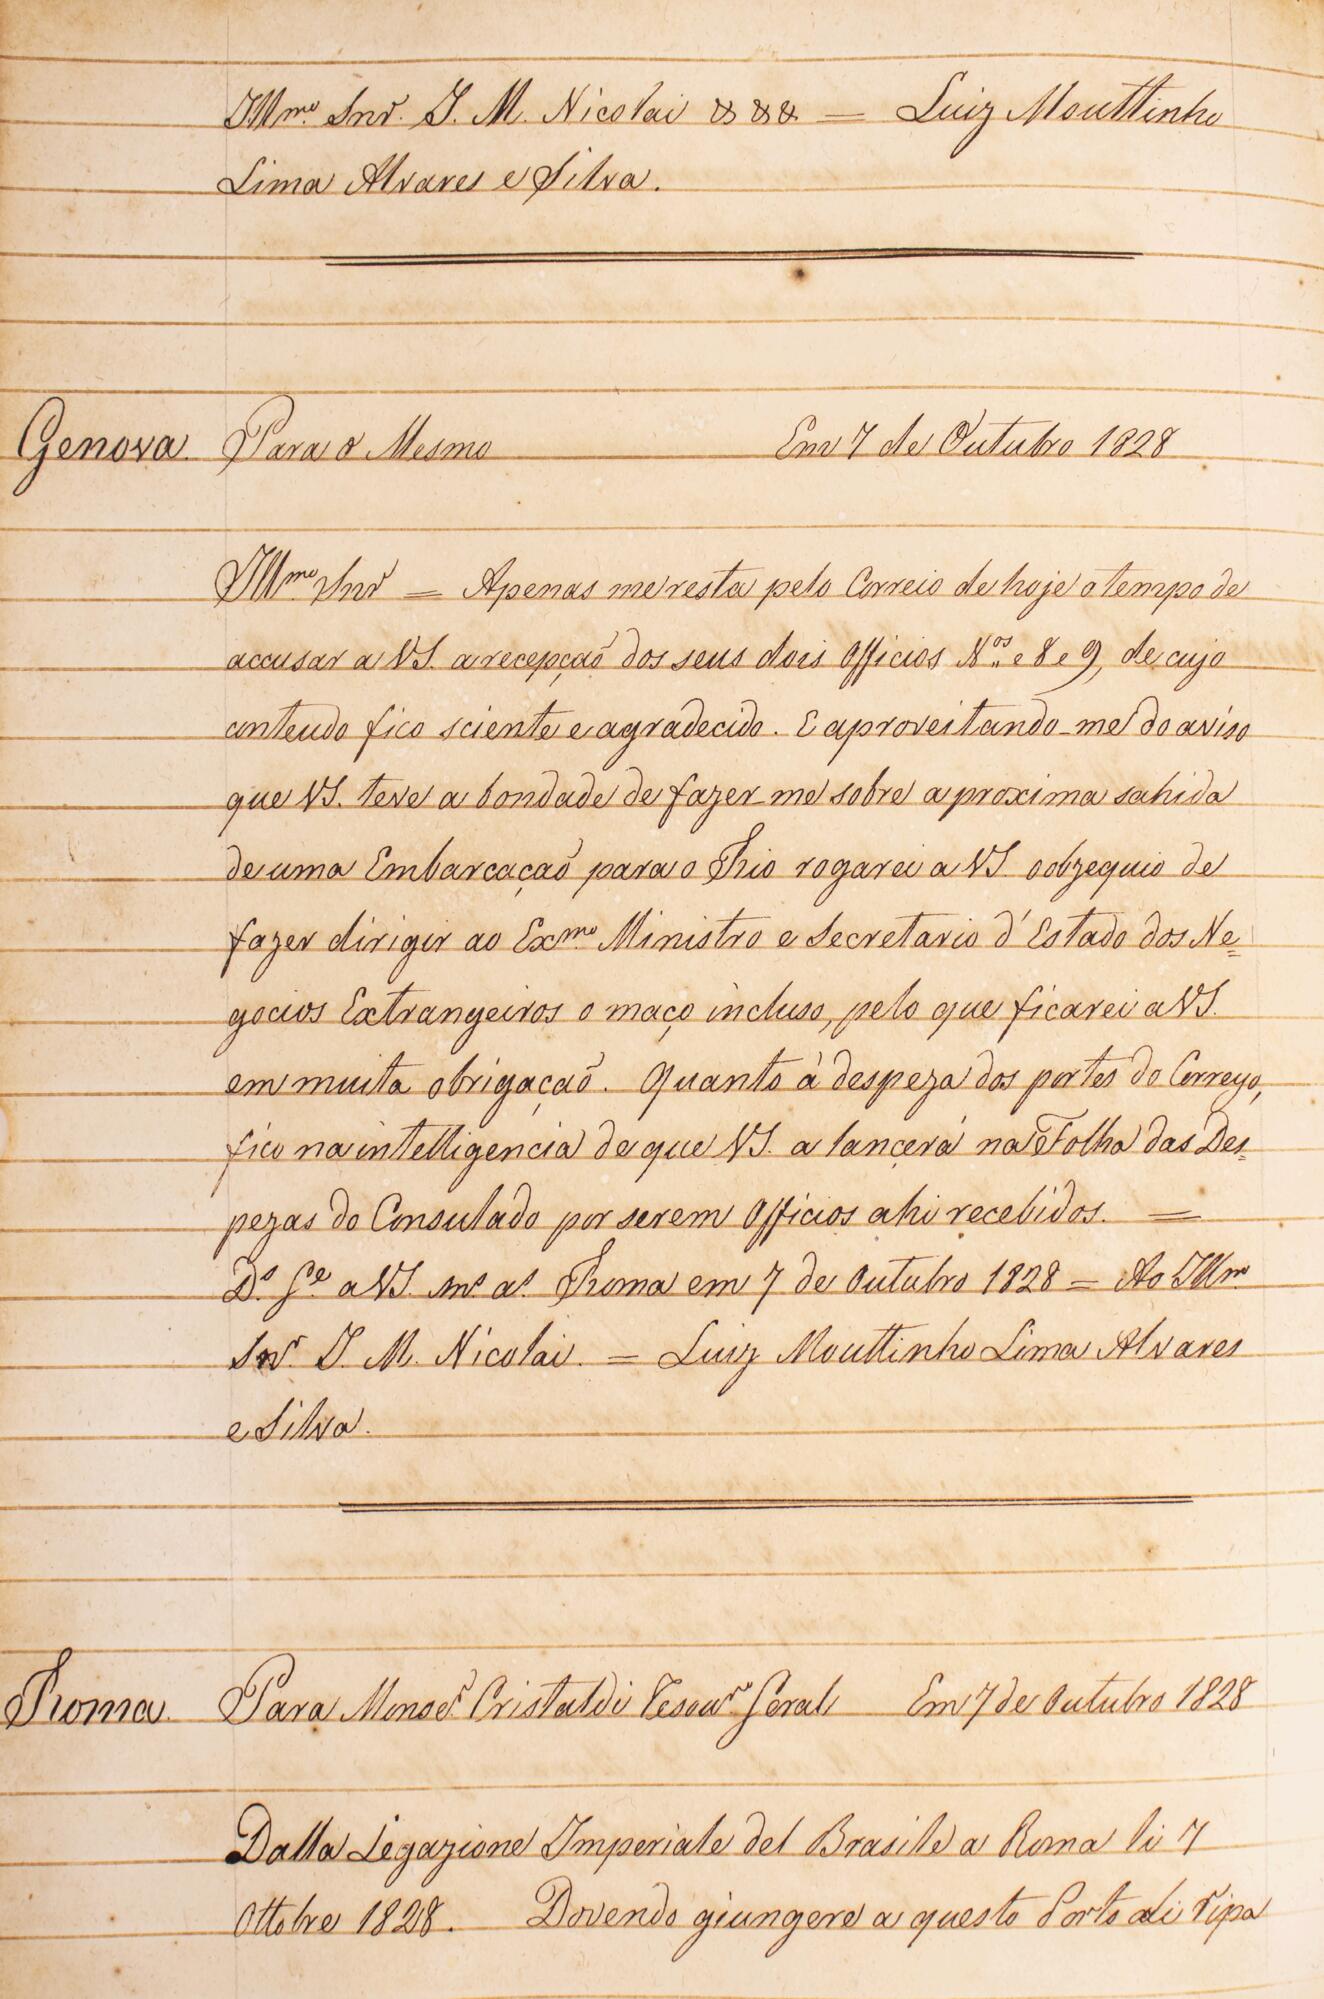 Illmo. Snr. J. M. Nicolai &&& = Luiz Mouttinho
Lima Alvares e Silva.
Genova. Para o Mesmo Em 7 de Outubro 1828
Illmo. Snr = Apenas me resta pelo Correio de hoje o tempo de
accusar a VS. a recepção dos seus dois Officios Nos. e 8 e 9, de cujo
conteudo fico sciente e agradecido. E aproveitando-me do aviso
que VS. teve a bondade de fazer-me sobre a proxima sahida
de uma Embarcação para o Rio rogarei a VS. o obzequio de
fazer dirigir ao Exmo. Ministro e Secretario d'Estado dos Ne=
gocios Extrangeiros o maço incluso, pelo que ficarei a VS.
em muita obrigação. Quanto à despeza dos portes do Correyo,
fico na intelligencia de que VS. a lançerá na Folha das Des=
pezas do Consulado por serem Officios ahi recebidos. =
Ds. Ge. a VS. ms. as. Roma em 7 de Outubro 1828 = Ao Illmo.
Snr. J. M. Nicolai. = Luiz Mouttinho Lima Alvares
e Silva.
Roma. Para Monser. Cristaldi Tesour. Geral Em 7 de Outubro 1828
Dalla Legazione Imperiale del Brasile a Roma li 7
Ottobre 1828. Dovendo giungere a questo Porto di Ripa